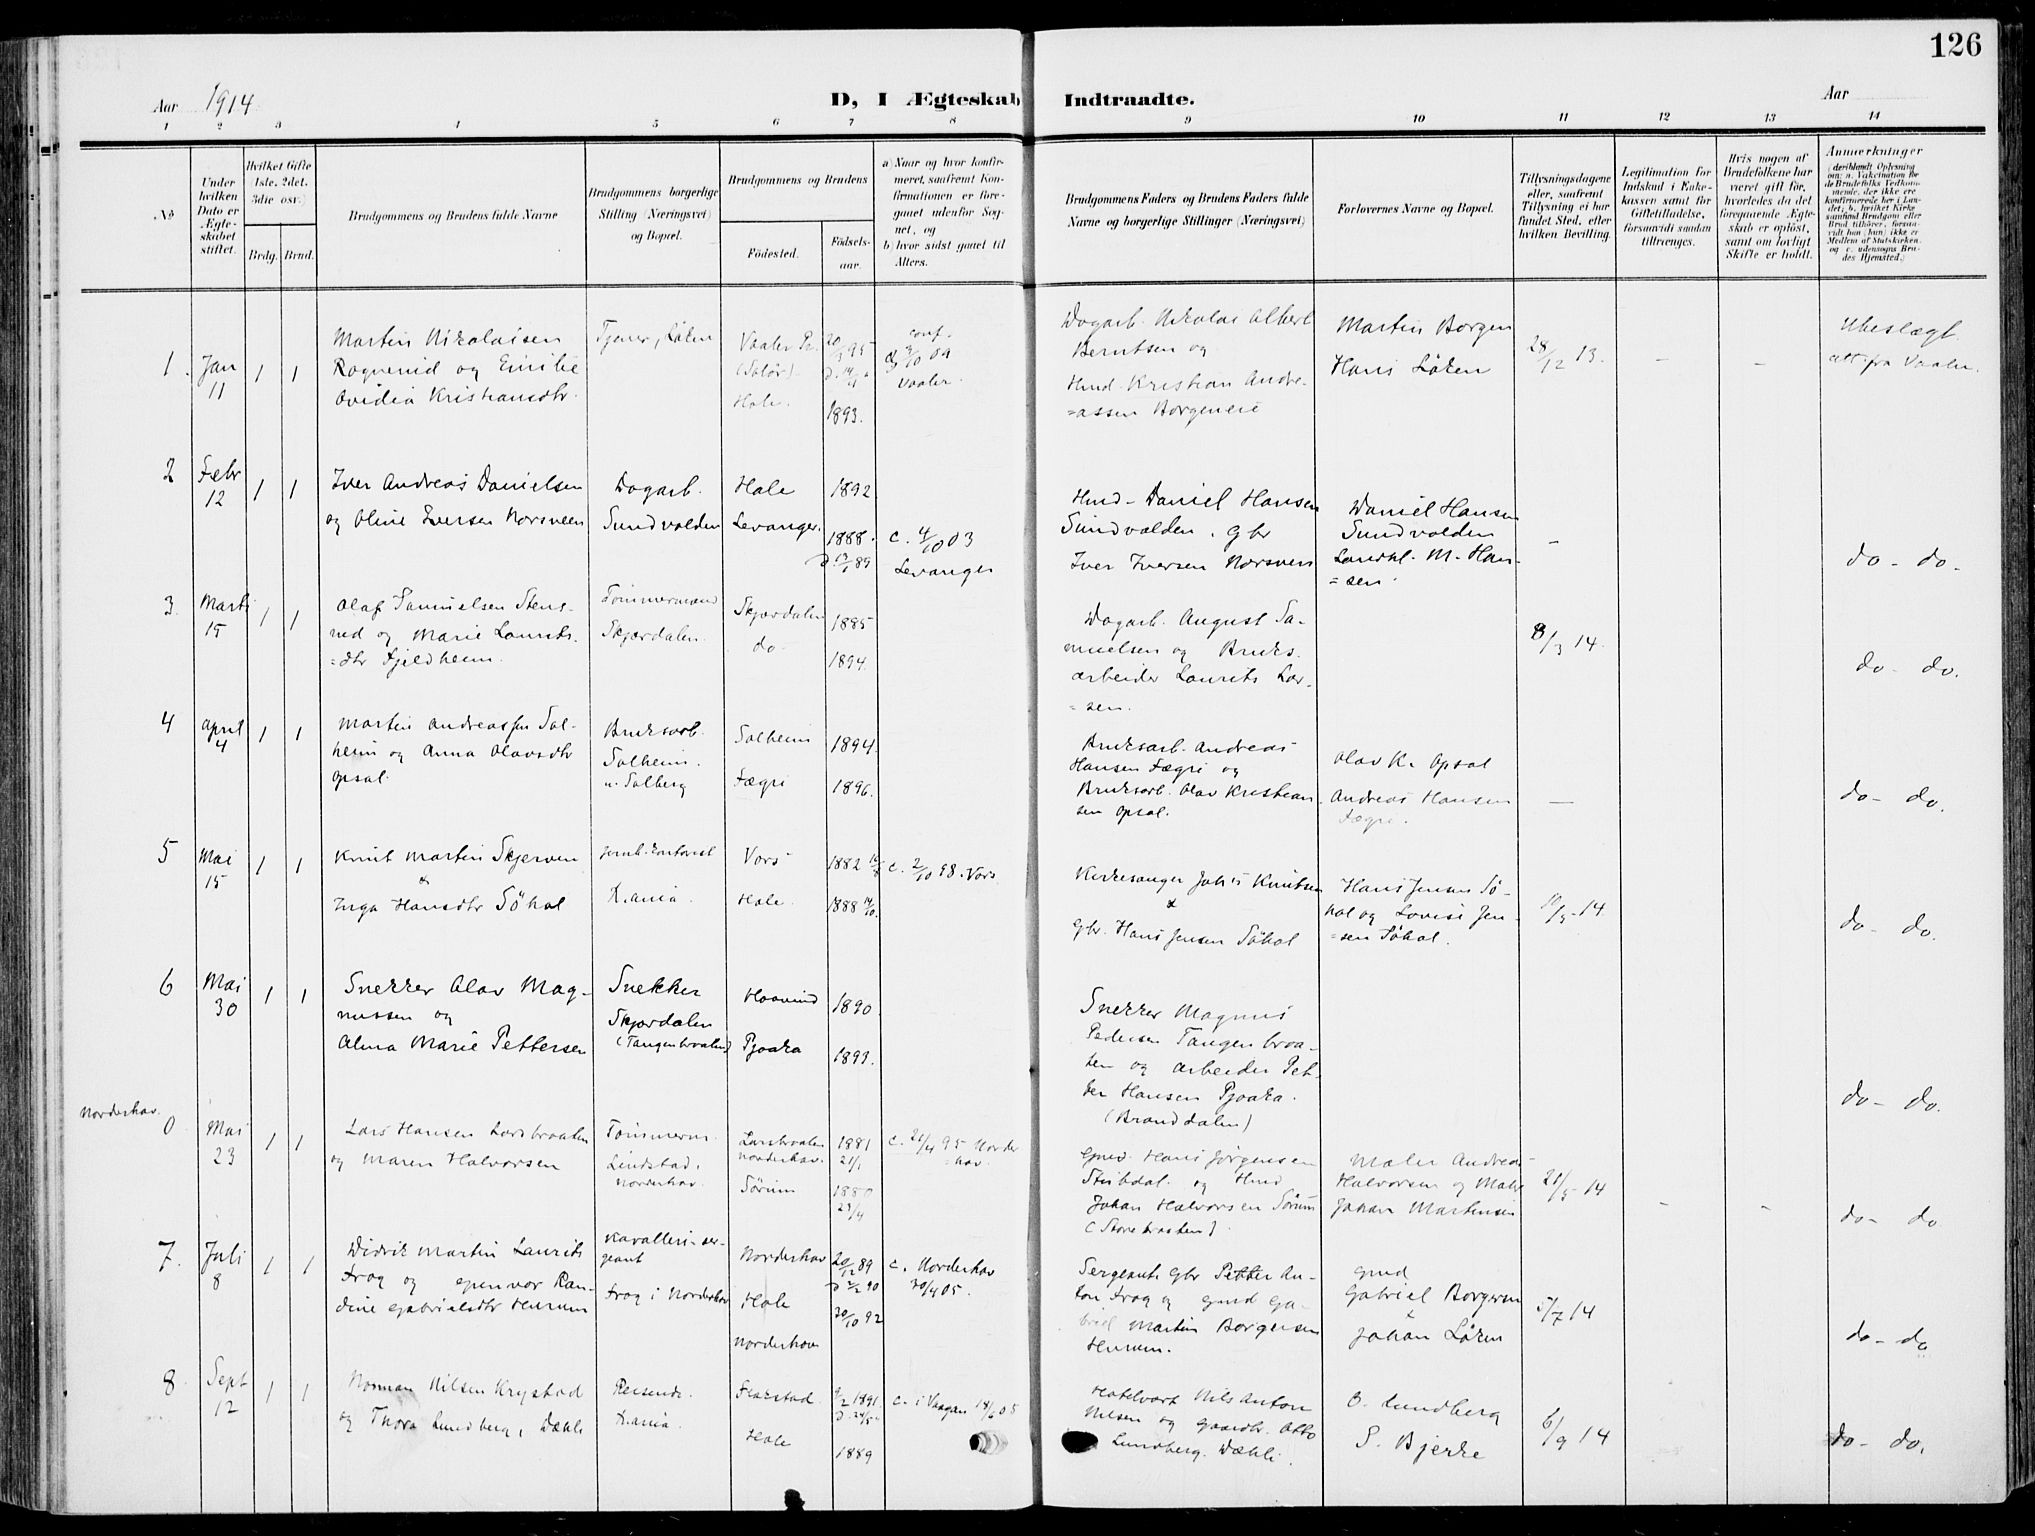 126
Aar 1914
D, I Ægteskab Indtraadte.
Aar
1 2 3 4 5 6 7 8 9 10 11 12 13 14
No
Under hvilken Dato er Ægteskabet stiftet.
Hvilket Gifte 1ste, 2det, 3die osv.)
Brdg. Brud.
Brudgommens og Brudens fulde Navne
Brudgommens borgerlige Stilling (Næringsvei) og Bopæl.
Brudgommens og Brudens
Fødested.
Fødselsaar.
a) Naar og hvor konfirmeret, saafremt Konfirmationen er foregaaet udenfor Sognet, og
b) hvor sidst gaaet til Alters.
Brudgommens Faders og Brudens Faders fulde Navne og borgerlige Stillinger (Næringsvei)
Forlovernes Navne og Bopæl.
Tillysningsdagene eller, saafremt Tillysning ei har fundet Sted, efter hvilken Bevilling.
Legitimation for Indskud i Enkekassen samt for Giftetilladelse, forsaavidt saadan tiltrænges.
Hvis nogen af Brudefolkene har været gift før, hvorledes da det foregaaende Ægteskab er opløst, samt om lovligt Skifte er holdt.
Anmerkninger
(deriblandt Oplysning om: a. Vaksination for de Brudefolks Vedkommende, der ikke ere konfirmerede her i Landet; b. hvilket Kirkesamfund Brudgom eller Brud tilhører, forsaavidt han (hun) ikke er Medlem af Statskirken, og c. udensogns Brudes Hjemsted.)
1. Jan 11 1 1
Martin Nikolaisen
Rognerud og Emilie
Ovidia Kristiansdtr.
Tjener, Løken
Vaaler Pr.
(Solør)
Hole.
20/3 95
1893.
conf.
3/10 09
Vaaler.
Dagarb. Nikolai Albert
Berntsen og
Hmd. Kristian Andre-
=assen Borgeneie
Martin Borgen
Hans Løken
28/12 13.
-
-
Ubeslægt.
att. fra Vaaler.
2 Febr 12 1 1
Iver Andreas Danielsen
og Oline Iversen Norsveen
Dagarb.
Sundvolden
Hole
Levanger.
1892
1888.
D. 13/1 89
c. 4/10 03
Levanger
Hmd - Daniel Hansen
Sundvolden. Gbr
Iver Iversen Norsveen
Daniel Hansen
Sundvolden
Landhl. M. Han-
=sen.
-
do - do -
3 Marts 15 1 1
Olaf Samuelsen Stens-
rud og Marie Laurits-
=dtr Fjeldheim.
Tømmermand
Skjærdalen.
Skjærdalen
do -
1885
1894.
Dagarb. August Sa-
muelsen og Bruks-
arbeider Laurits Lar-
=sen.
8/3 14.
do - do.
4 April 4 1 1
Martin Andreassen Sol-
heim og Anna Olavsdtr
Opsal.
Bruksarb.
Solheim.
u. Solberg
Solheim
Fægri
1894.
1896.
Bruksarb. Andreas
Hansen Fægri og
Bruksarb. Olav Kristian-
sen Opsal.
Olav K. Opsal
Andreas Hansen
Fægri.
-
do - do.
5 Mai 15 1 1
Knut Martin Skjerven
&
Inga Hansdtr Søhol
Jernb. kontorist
K.ania.
Vors
Hole.
1882
1888 14/10.
c. 2/10 98. Vors
Kirkesanger Johs Knutsen
&
Gbr. Hans Jensen Søhol
Hans Jensen Sø-
hol og Lovise Jen-
=sen Søhol.
10/5 - 14.
do - do.
6 Mai 30 1 1
Snekker Olav Mag-
nussen og
Alma Marie Pettersen
Snekker
Skjærdalen
(Tangenbraaten)
Haavind
Pjaaka
1890
1893.
Snekker Magnus
Pedersen Tangenbraa-
ten og arbeider Pet-
ter Hansen Pjaaka.
(Branddalen)
do - do.
Norderhov.
0 Mai 23 1 1
Lars Hansen Larsbraaten
og Maren Halvorsen
Tømmerm.
Lindstad,
Norderhov.
Larsbraaten
Norderhov.
Sørum
1881
21/1
1880
23/4
c. 21/4 95 Norder
=hov.
Gmd. Hans Jørgensen
Stubdal og Hmd
Johan Halvorsen Sørum
(Storebraaten)
Maler Andreas
Halvorsen og Maler
Johan Martinsen
21/5 - 14
-
-
do - do
7. Juli 8 1 1
Didrik Martin Laurits
Frog og Gjenvor Ran-
dine Gabrielsdtr Hurum
Kavalleri-ser-
geant
Frog i Norderhov
Norderhov
Hole
Norderhov
20/12 89
D 2/2 90
30/10 92
c. Norderhov
30/4 05.
Sergeant & Gbr Petter An-
ton Frog og Gmd Ga-
briel Martin Borgersen
Hurum.
Gmd
Gabriel Borgersen
&
Johan Løken
5/7 14
do - do
8. Sept 12 1 1
Norman Nilsen Krystad
og Thora Lundberg, Dæhli
Reisende.
K.ania.
Flakstad.
Hole
9/2 1891.
1889
c. i Vaagan 18/6 05
Hotelvært Nils Anton
Nilsen og Gaardbr. Otto
Lundberg. Dæhli.
O. Lundberg
S. Bjerke
6/9 14
do - do.